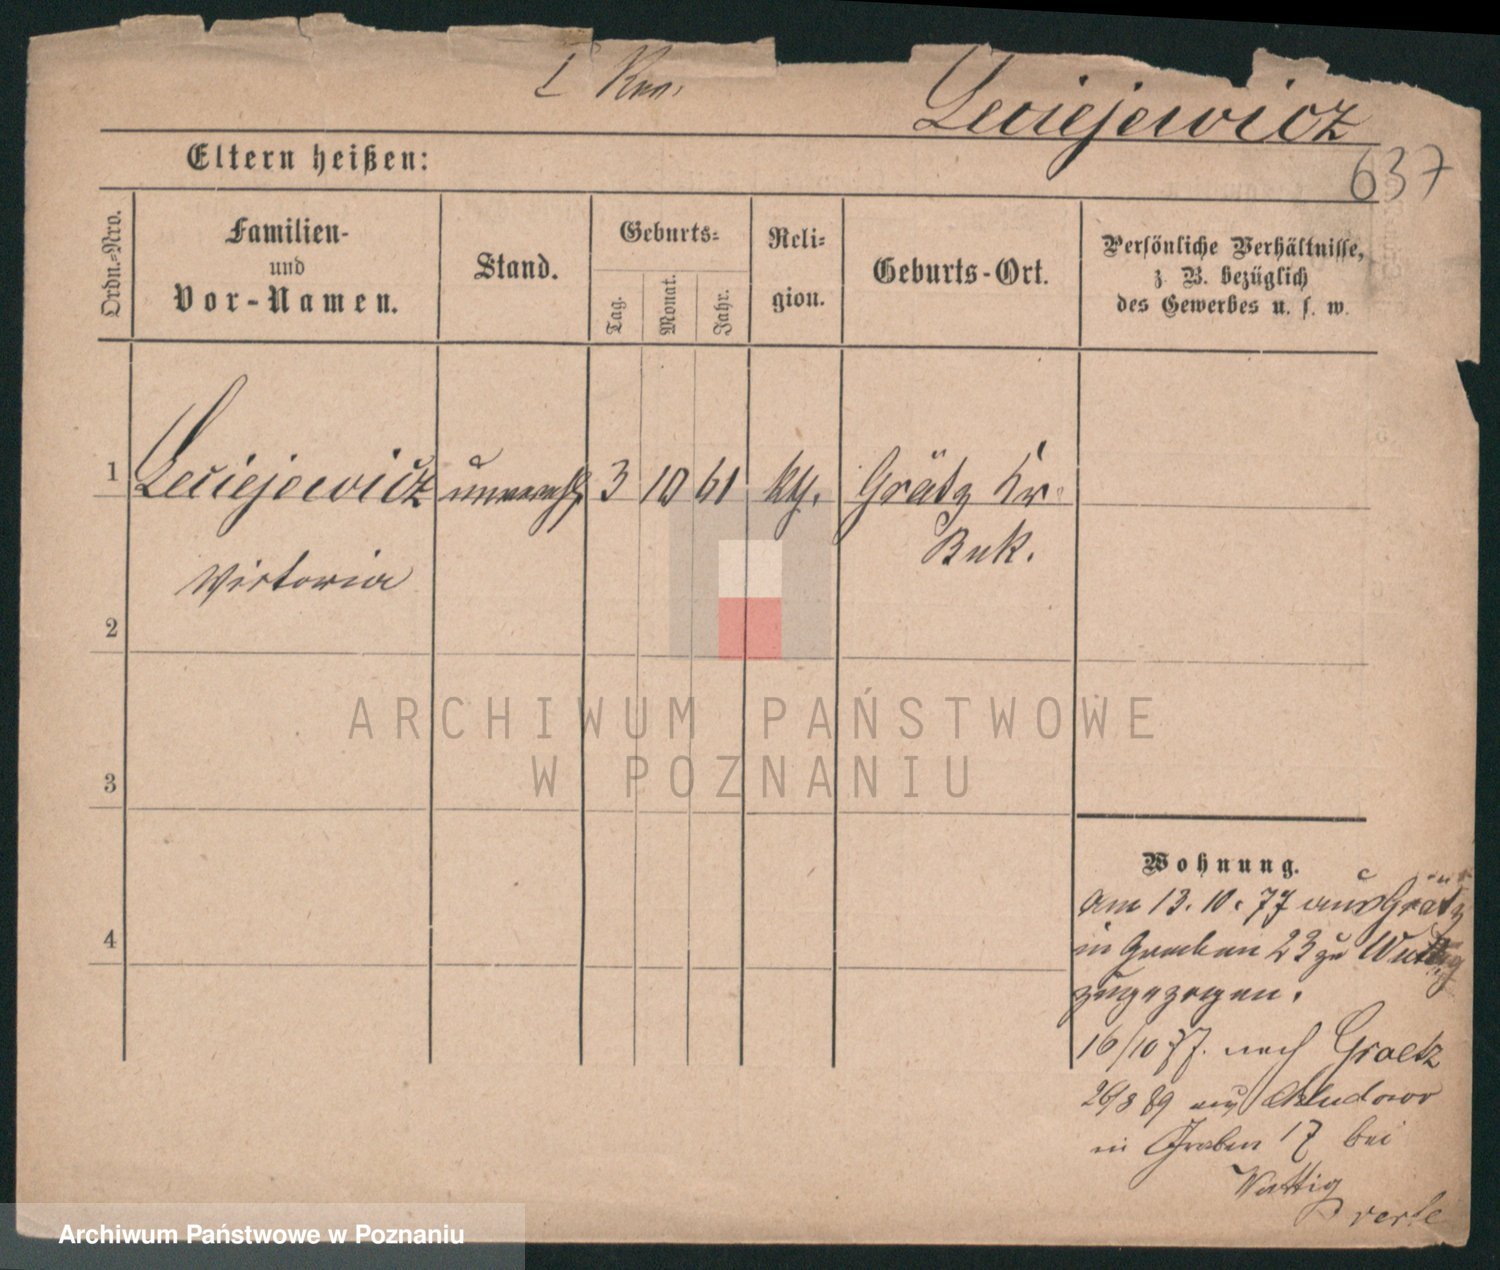 I
Leciejewicz
637
Eltern heißen:
Ordn.-Nro.
Familien-
und
Vor-Namen.
Stand.
Geburts-
Tag.
Monat.
Jahr.
Reli-
gion.
Geburts-Ort.
Persönliche Verhältnisse,
z. B. bezüglich
des Gewerbes u. s. w.
1
Leciejewicz unverehl 3 10 61 kth. Grätz Kr
Buk.
Victoria
2
3
4
Wohnung.
am 13. 10. 77 aus Grätz
in Graben 23 zu Wuttig
zugezogen.
16/10 77. nach Graetz
26/8 89 aus Chludowo
in Graben 17 bei
Wuttig
verte
ARCHIWUM PAŃSTWOWE
W POZNANIU
Archiwum Państwowe w Poznaniu